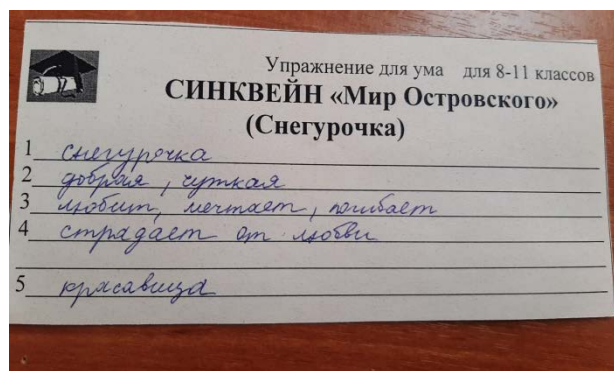 Упражнение для ума для 8-11 классов
СИНКВЕЙН «Мир Островского»
(Снегурочка)
1 снегурочка
2 добрая, чуткая
3 любит, мечтает, погибает
4 страдает от любви
5 красавица